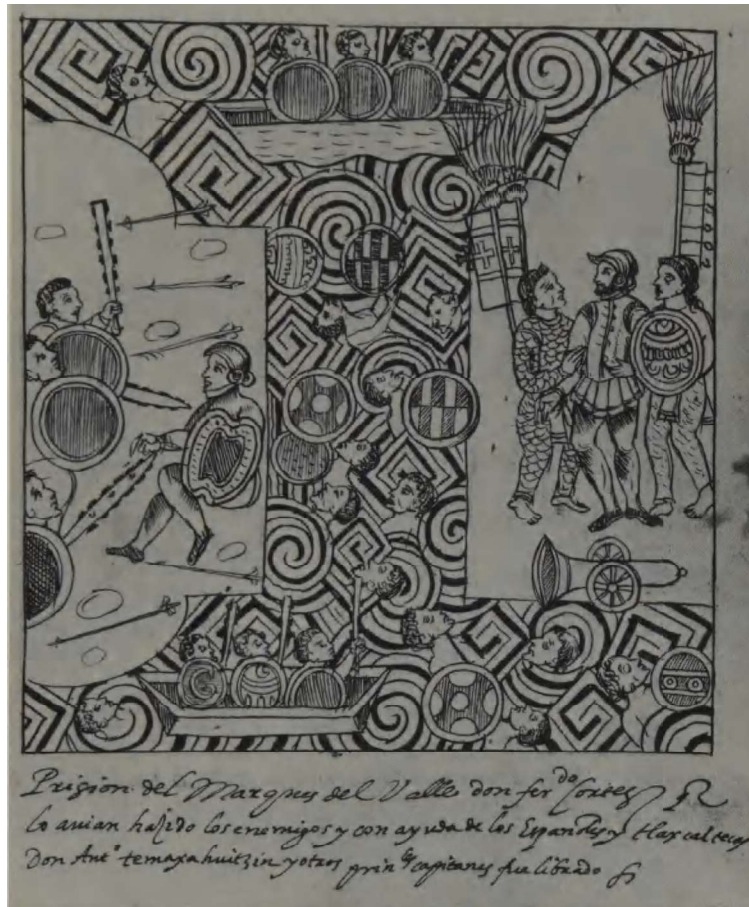 Prision del Marques del Valle don fer^do Cortes
lo avian hasido los enemigos y con ayuda de los Españoles y tlaxcaltecas
Don Ant^o temaxahuitzin y otros prin^les capitanes fue librado